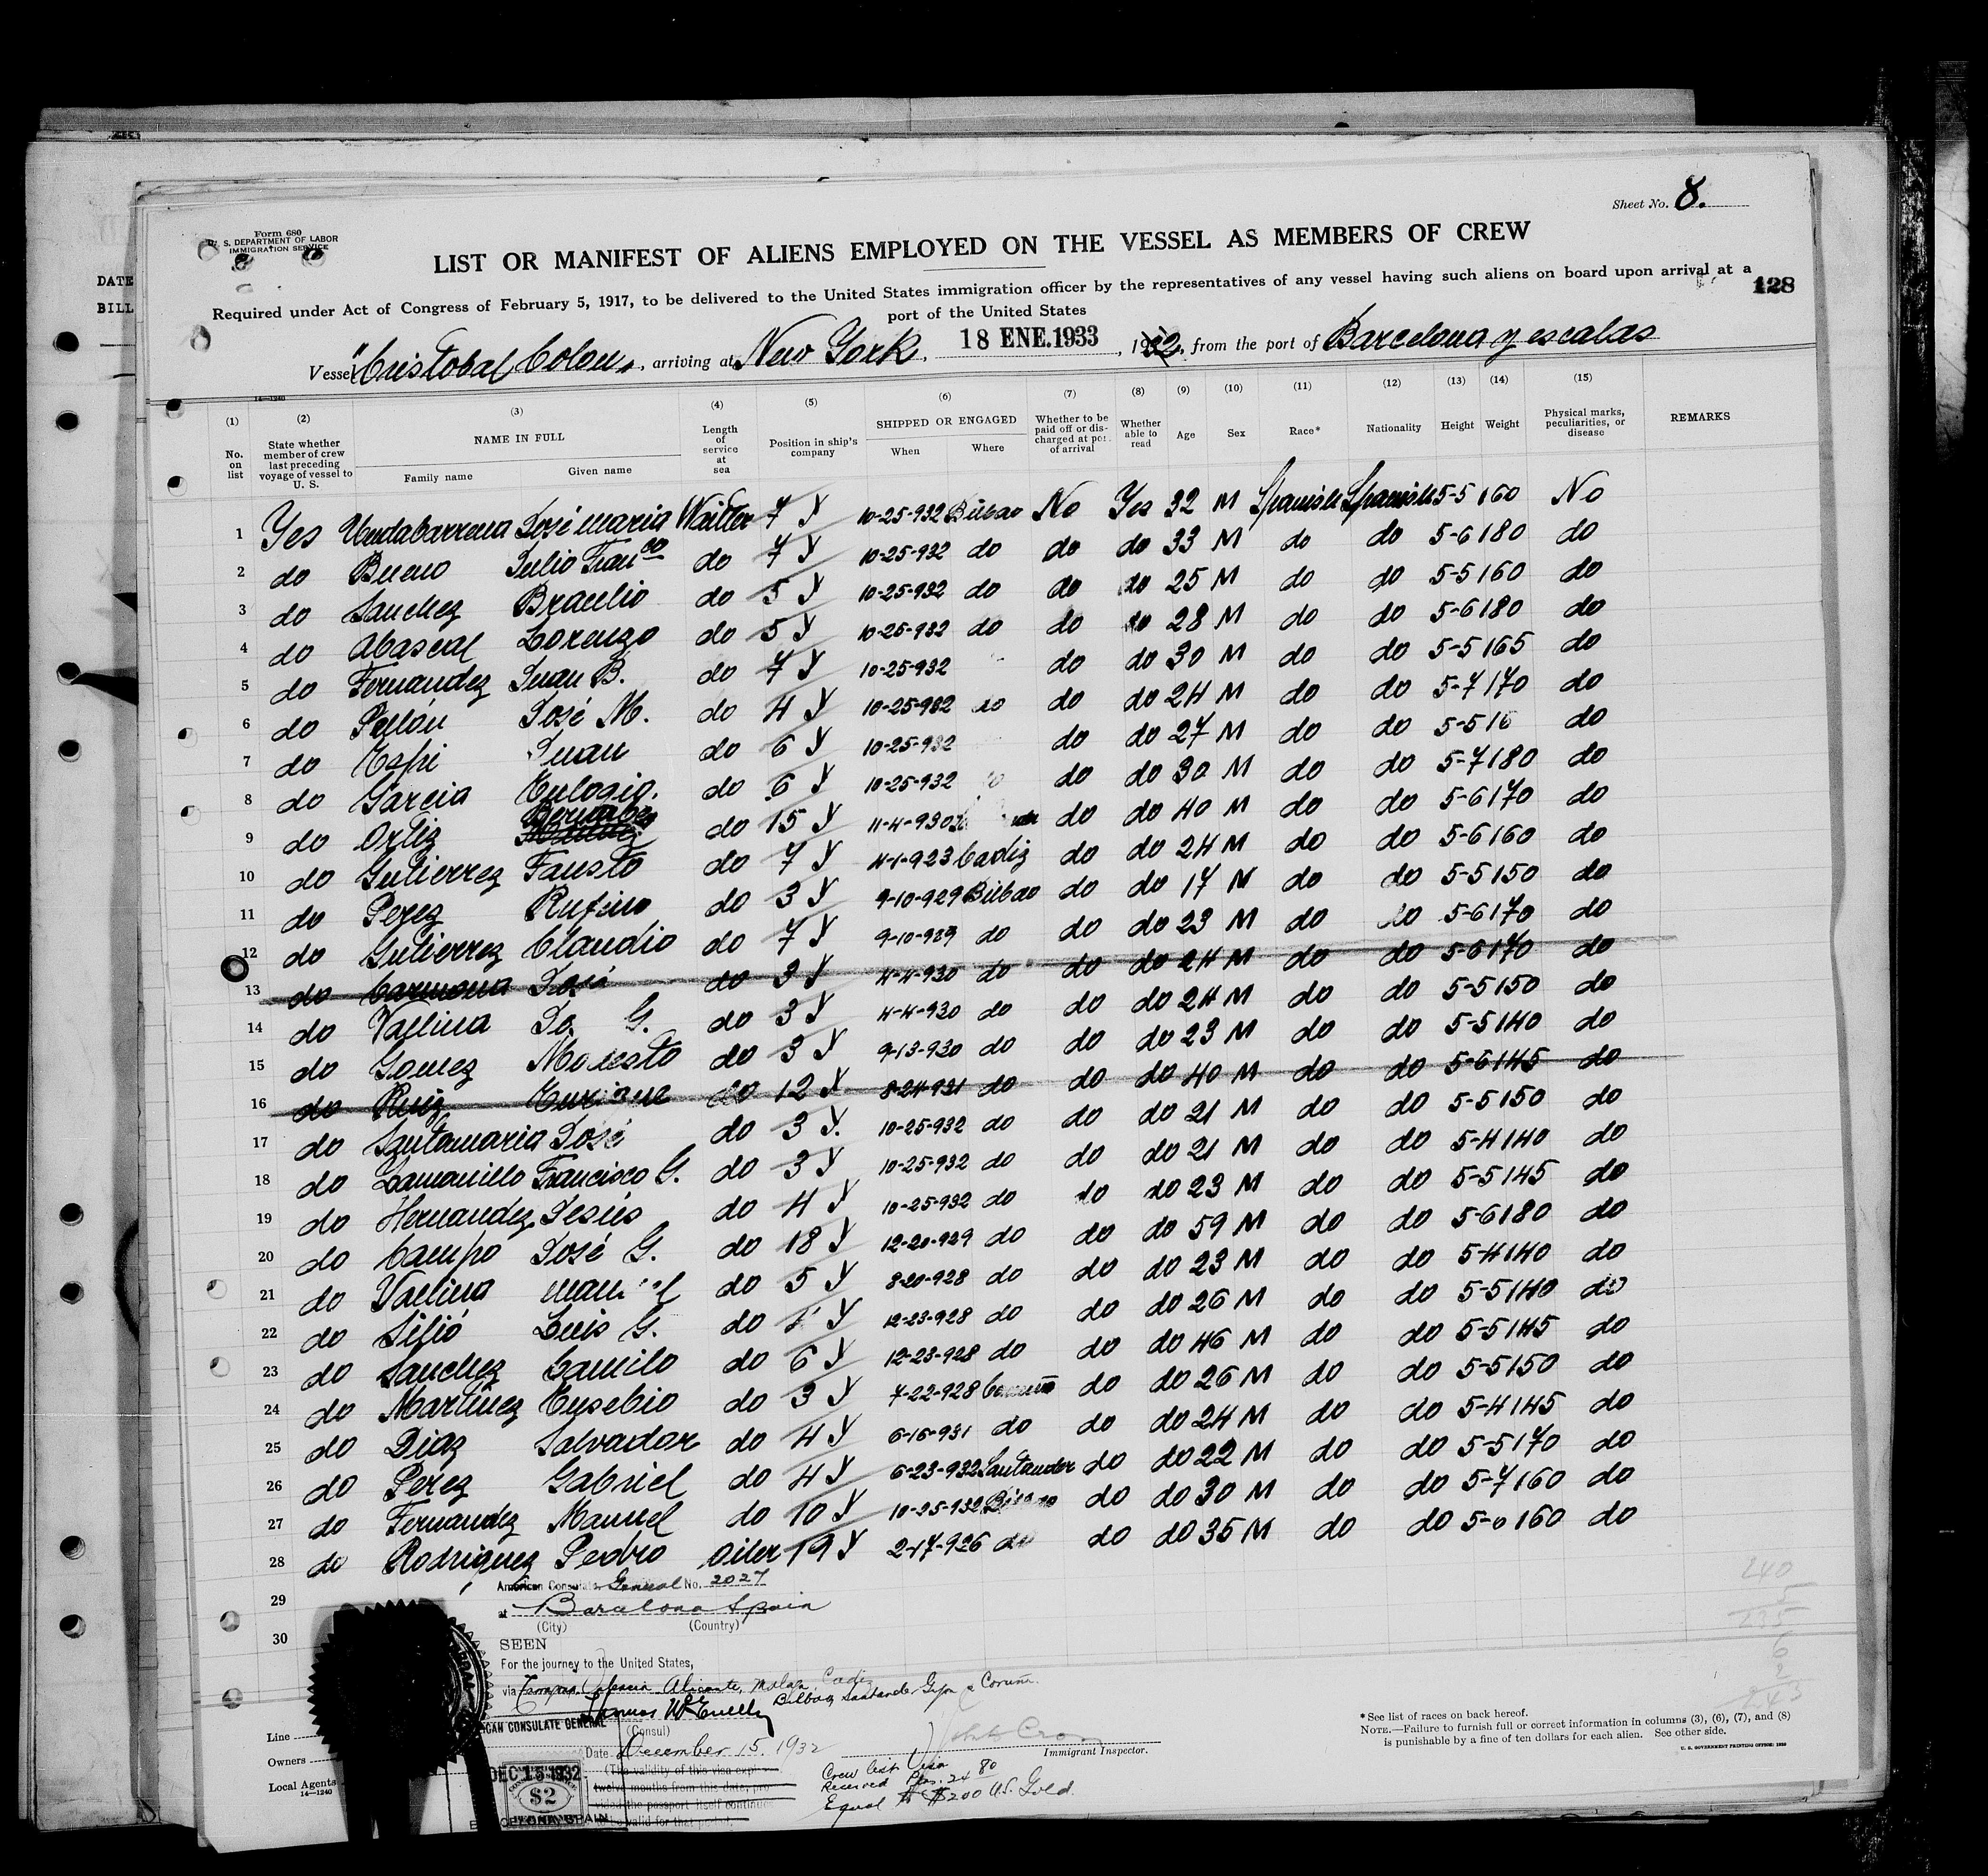 Sheet No. 8.
Form 680
U. S. DEPARTMENT OF LABOR
IMMIGRATION SERVICE
LIST OR MANIFEST OF ALIENS EMPLOYED ON THE VESSEL AS MEMBERS OF CREW
Required under Act of Congress of February 5, 1917, to be delivered to the United States immigration officer by the representatives of any vessel having such aliens on board upon arrival at a
port of the United States
128
DATE
BILL
Vessel "Cristobal Colon", arriving at New York, 18 ENE. 1933, 1932, from the port of Barcelona y escalas
14—1240
(1) (2) (3) (4) (5) (6) (7) (8) (9) (10) (11) (12) (13) (14) (15)
No. on list
State whether member of crew last preceding voyage of vessel to U. S.
NAME IN FULL
Family name Given name
Length of service at sea
Position in ship's company
SHIPPED OR ENGAGED
When Where
Whether to be paid off or discharged at port of arrival
Whether able to read
Age Sex Race* Nationality Height Weight
Physical marks, peculiarities, or disease
REMARKS
1 Yes José Maria Waiter 7 Y 10-25-932 Bilbao No Yes 32 M Spanish Spanish 5-5 160 No
2 do Bueno Julio Franco do 7 Y 10-25-932 do do do 33 M do do 5-6 180 do
3 do Sanchez Braulio do 5 Y 10-25-932 do do do 25 M do do 5-5 160 do
4 do Abascal Lorenzo do 5 Y 10-25-932 do do do 28 M do do 5-6 180 do
5 do Fernandez Juan B. do 7 Y 10-25-932 do do 30 M do do 5-5 165 do
6 do Pellón José M. do 4 Y 10-25-932 do do do 24 M do do 5-7 170 do
7 do Espi Juan do 6 Y 10-25-932 do do 27 M do do 5-5 do
8 do Garcia Eulogio. do 6 Y 10-25-932 do do 30 M do do 5-7 180 do
9 do Ortiz Bernabe do 15 Y 11-4-930 do do 40 M do do 5-6 170 do
10 do Gutierrez Fausto do 7 Y 4-1-923 Cadiz do do 24 M do do 5-6 160 do
11 do Perez Rufino do 3 Y 9-10-929 Bilbao do do 17 M do do 5-5 150 do
12 do Gutierrez Claudio do 7 Y 9-10-929 do do do 23 M do do 5-6 170 do
13 do Carmona José do 3 Y 4-4-930 do do do 24 M do do 5-6 170 do
14 do Vallina G. do 3 Y 4-4-930 do do do 24 M do do 5-5 150 do
15 do Gomez Modesto do 3 Y 9-13-930 do do do 23 M do do 5-5 140 do
16 do Ruiz Enrique do 12 Y 8-24-931 do do do 40 M do do 5-6 145 do
17 do Santamaria José do 3 Y. 10-25-932 do do do 21 M do do 5-5 150 do
18 do Lamanillo Francisco G. do 3 Y 10-25-932 do do do 21 M do do 5-4 140 do
19 do Hernandez Jesús do 4 Y 10-25-932 do do do 23 M do do 5-5 145 do
20 do Campo José G. do 18 Y 12-20-929 do do do 59 M do do 5-6 180 do
21 do Vallina Manuel do 5 Y 8-20-928 do do do 23 M do do 5-4 140 do
22 do Sifió Luis G. do Y 12-23-928 do do do 26 M do do 5-5 140 do
23 do Sanchez Camilo do 6 Y 12-23-928 do do do 46 M do do 5-5 145 do
24 do Martinez Eusebio do 3 Y 7-22-928 do do 26 M do do 5-5 150 do
25 do Diaz Salvador do 4 Y 6-16-931 do do do 24 M do do 5-4 145 do
26 do Perez Gabriel do 4 Y 6-23-932 Santander do do 22 M do do 5-5 170 do
27 do Fernandez Manuel do 10 Y 10-25-932 Bilbao do do 30 M do do 5-7 160 do
28 do Rodriguez Pedro Oiler 19 Y 2-17-926 do do do 35 M do do 160 do
29
30
American Consulate General No. 2027
at Barcelona Spain
(City) (Country)
SEEN
For the journey to the United States,
via Valencia Alicante, Malaga, Cadiz
Bilbao, Santander Gijon & Coruña.
AMERICAN CONSULATE GENERAL
(Consul)
Date December 15, 1932
(The validity of this visa expires
twelve months from this date, pro-
vided the passport itself continues
valid for that period.
DEC 15 1932
$2
BARCELONA, SPAIN
Line
Owners
Local Agents
14—1240
John
Immigrant Inspector.
Crew list Visa
Received Ptas. 24 80
Equal $2.00 U.S. Gold.
240
5
235
6
2
243
*See list of races on back hereof.
NOTE.—Failure to furnish full or correct information in columns (3), (6), (7), and (8)
is punishable by a fine of ten dollars for each alien. See other side.
U. S. GOVERNMENT PRINTING OFFICE